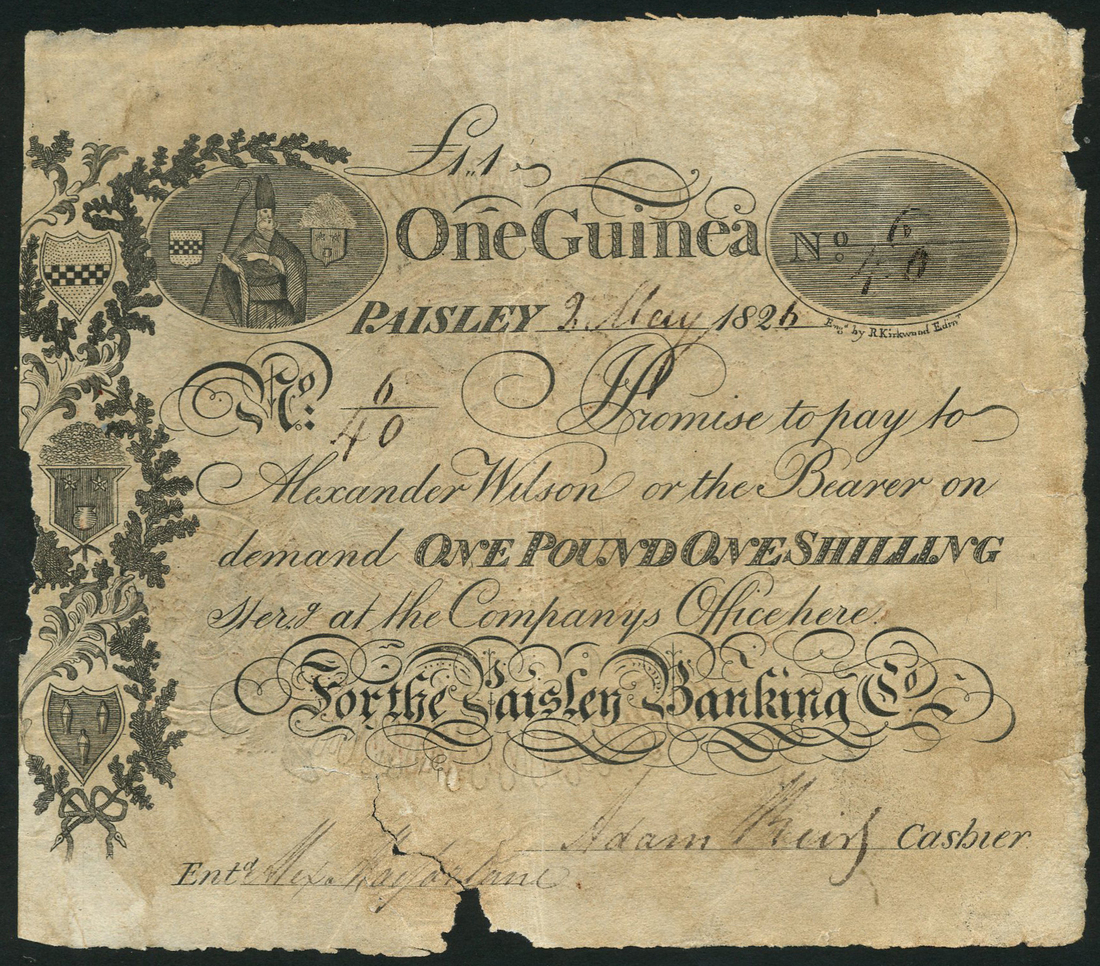 £1„1
One Guinea
No. 6/40
PAISLEY 2 May 1826
Engd. by R Kirkwood Edinr.
No. 6/40 I Promise to pay to
Alexander Wilson or the Bearer on
demand ONE POUND ONE SHILLING
Sterg at the Companys Office here.
For the Paisley Banking Co.
Adam Keir Cashier
Entd Alex Macfarlane